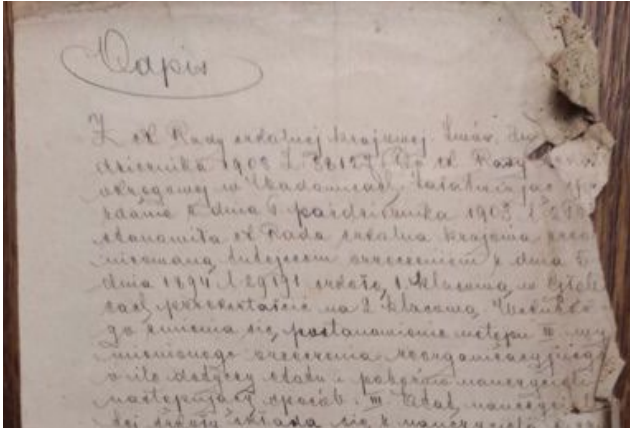 Odpis
Z ck Rady szkolnej krajowej. Lwów, dn
dziernika 1903 L 38127. Do ck Rady
okręgowej w Wadowicach. Załatwiając spra
zdanie z dnia 5 października 1903 L
stanowiła ck Rada szkolna krajowa zreo
nizowaną tutejszem orzeczeniem z dnia 5
dnia 1894 L 29191 szkołę 1 klasową w
cach przekształcić na 2 klasową.
go zmienia się postanowienie ustępu III wy
mienionego orzeczenia reorganizacyjnego
o ile dotyczy etatu i poborów nauczycieli
następujący sposób. III. Etat nauczyciel
tej szkoły składa się z nauczyciela